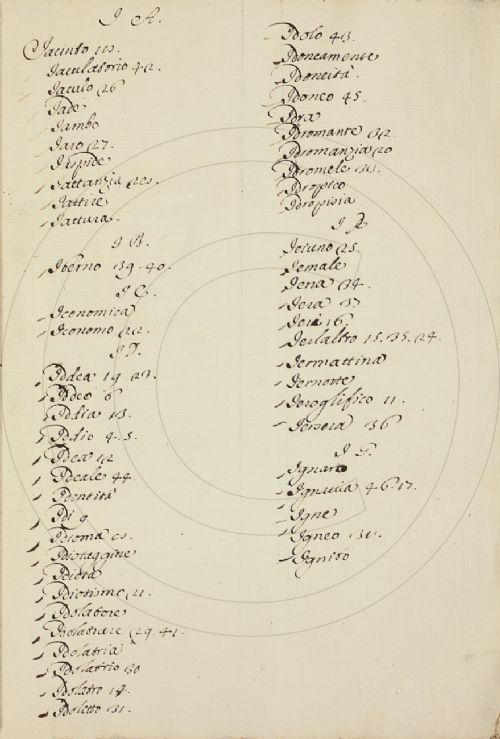 I A.
Jacinto
Jaculatorio 42.
Jaculo 26
Jade
Jambo
Jaro 27.
Jaspide
Jattanzia
Jattile
Jattura.
I B.
Iberno 39. 40.
I C.
Iconomica
Iconomo 22.
I D.
Iddea 19
Iddeo 6
Iddia
Iddio 4. 5.
Idea
Ideale 44.
Identità
Idi 9
Idioma
Idiotaggine
Idiota
Idiotismo 21.
Idolatore
Idolatrare 29. 41.
Idolatria
Idolatrio 30
Idolatro
Idoletto 31.
Idolo 43.
Idoneamente
Idoneità.
Idoneo 45.
Idra
Idromante 32.
Idromanzia 20
Idromele
Idropico
Idropisia
I E.
Jeiuno 25.
Jemale
Jena 34.
Jera 37.
Jeri 16.
Jerlaltro 15. 35. 24.
Jermattina
Jernotte
Jeroglifico 11.
Jersera 36
I G.
Ignaro
Ignavia 46. 17.
Igne
Igneo